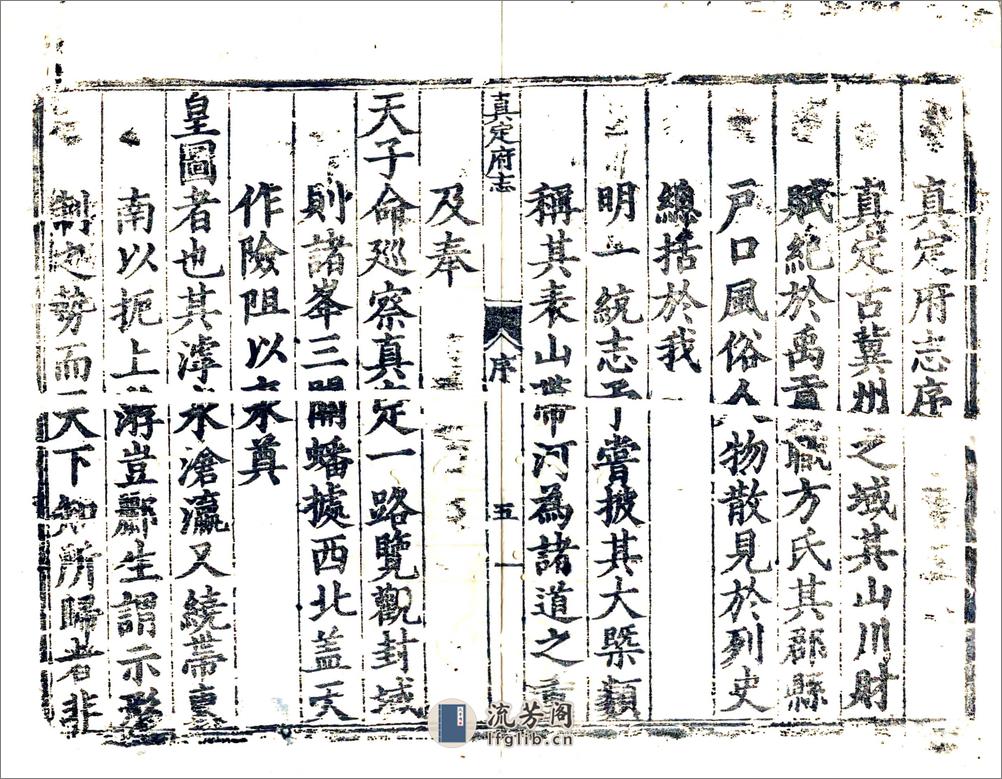 真定府志序
真定古冀州之域其山川財
賦紀於禹貢職方氏其郡縣
戶口風俗人物散見於列史
總括於我
明一統志予嘗披其大槩類
稱其表山帶河為諸道之重
真定府志
序
五
一
及奉
天子命廵察真定一路覽觀封域
則諸峯三關蟠據西北蓋天
作險阻以奠
皇圖者也其滹水滄瀛又繞帶
南以扼上游豈酈生謂示形
制之勢而天下知所歸者非
流芳阁
lfglib.cn